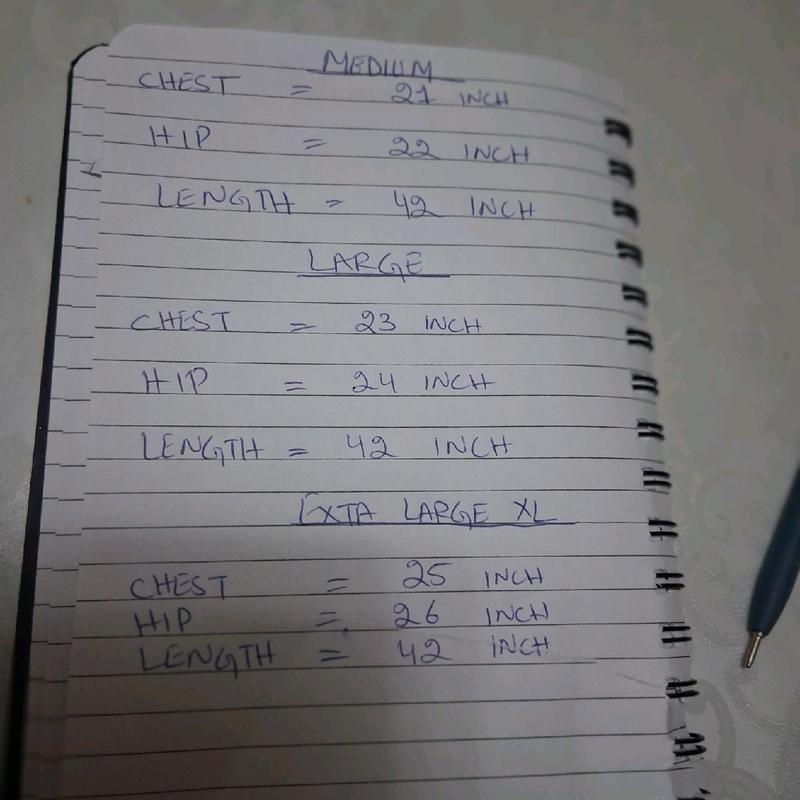 MEDIUM
CHEST = 21 INCH
HIP = 22 INCH
LENGTH = 42 INCH
LARGE
CHEST = 23 INCH
HIP = 24 INCH
LENGTH = 42 INCH
EXTA LARGE XL
CHEST = 25 INCH
HIP = 26 INCH
LENGTH = 42 INCH